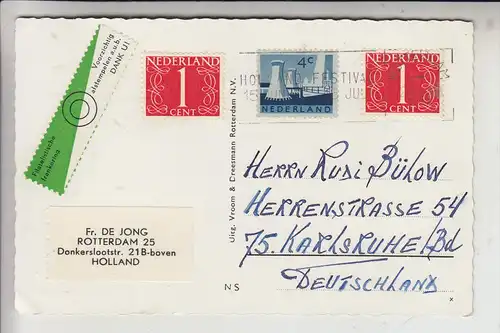 Voorzichtig
afstempelen a.u.b.
DANK U!
Filatelistische
frankering
NEDERLAND
1
CENT
4c
NEDERLAND
NEDERLAND
1
CENT
HOLLAND FESTIVAL
15 JU
Uitg. Vroom & Dreesmann Rotterdam N.V.
Fr. DE JONG
ROTTERDAM 25
Donkerslootstr. 21B-boven
HOLLAND
HERRN RUDI BÜLOW
HERRENSTRASSE 54
75. KARLSRUHE/Bd
DEUTSCHLAND
NS
x